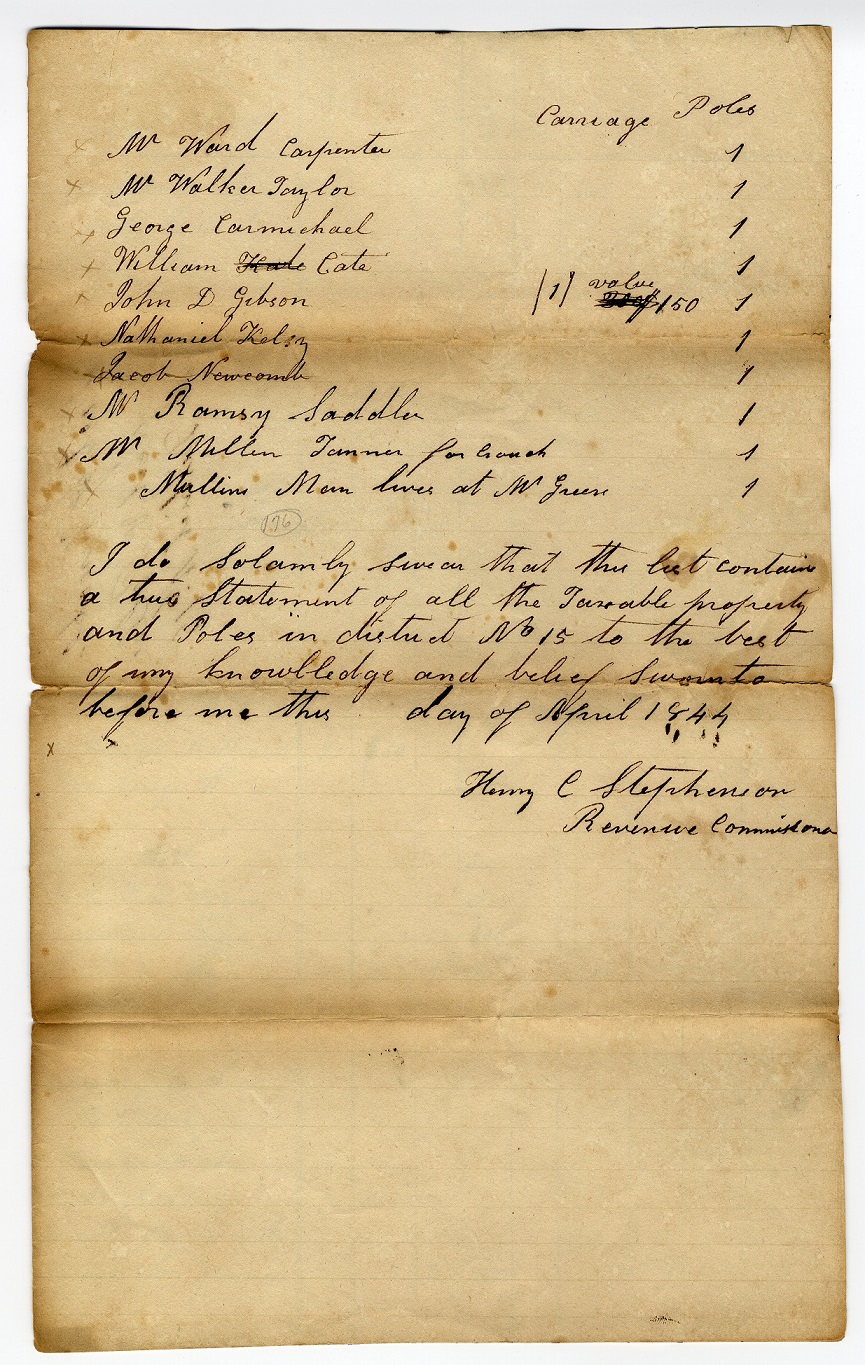 Carriage Poles
Mr Ward Carpenter 1
Mr Walker Taylor 1
George Carmichael 1
William Cate 1
John D Gibson |1| value 150 1
Nathaniel Kelsy 1
Jacob Newcomb 1
Mr Ramsy Saddler 1
Mr Millen Tanner for Crouch 1
Mullins Man lives at Mr Greens 1
176
I do Solamly swear that this list contains
a true Statement of all the Taxable property
and Poles in district No 15 to the best
of my knowlledge and belief Sworn to
before me this day of April 1844
Henry C Stephenson
Revenue Commissioner